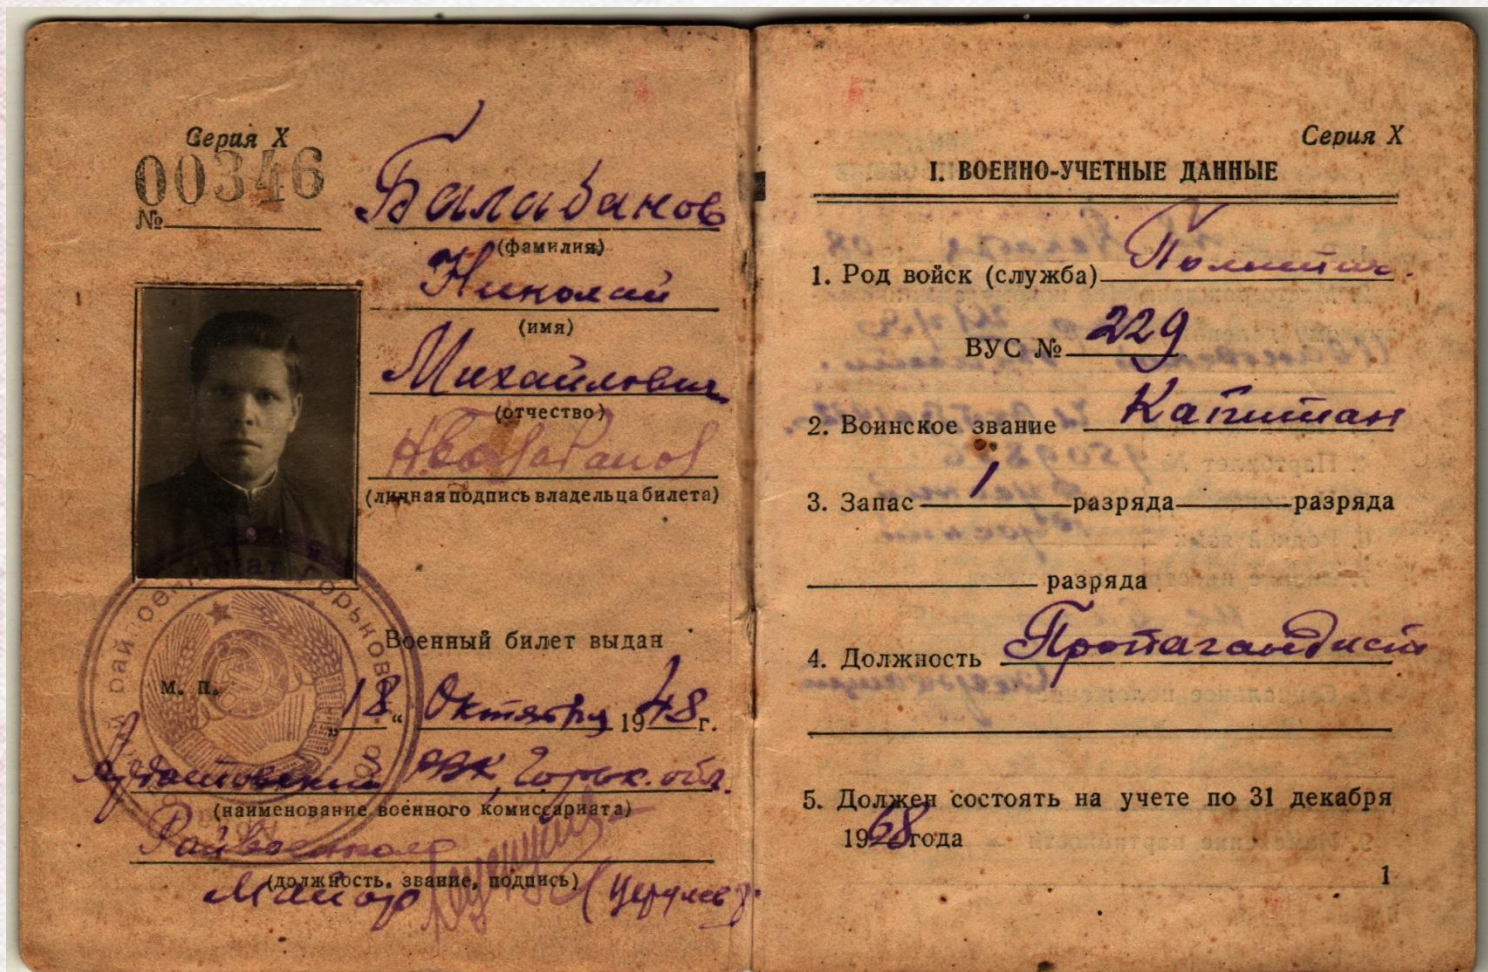 Серия X
00346
№
Балабанов
(фамилия)
Николай
(имя)
Михайлович
(отчество)
(личная подпись владельца билета)
Военный билет выдан
М. П.
„18“ Октября 1948 г.
РВК, Горьк. обл.
(наименование военного комиссариата)
Райвоенком
(должность, звание, подпись)
Майор
Серия X
I. ВОЕННО-УЧЕТНЫЕ ДАННЫЕ
1. Род войск (служба) Политич.
ВУС № 229
2. Воинское звание Капитан
3. Запас 1 разряда разряда
разряда
4. Должность Пропагандист
5. Должен состоять на учете по 31 декабря
1968 года
1